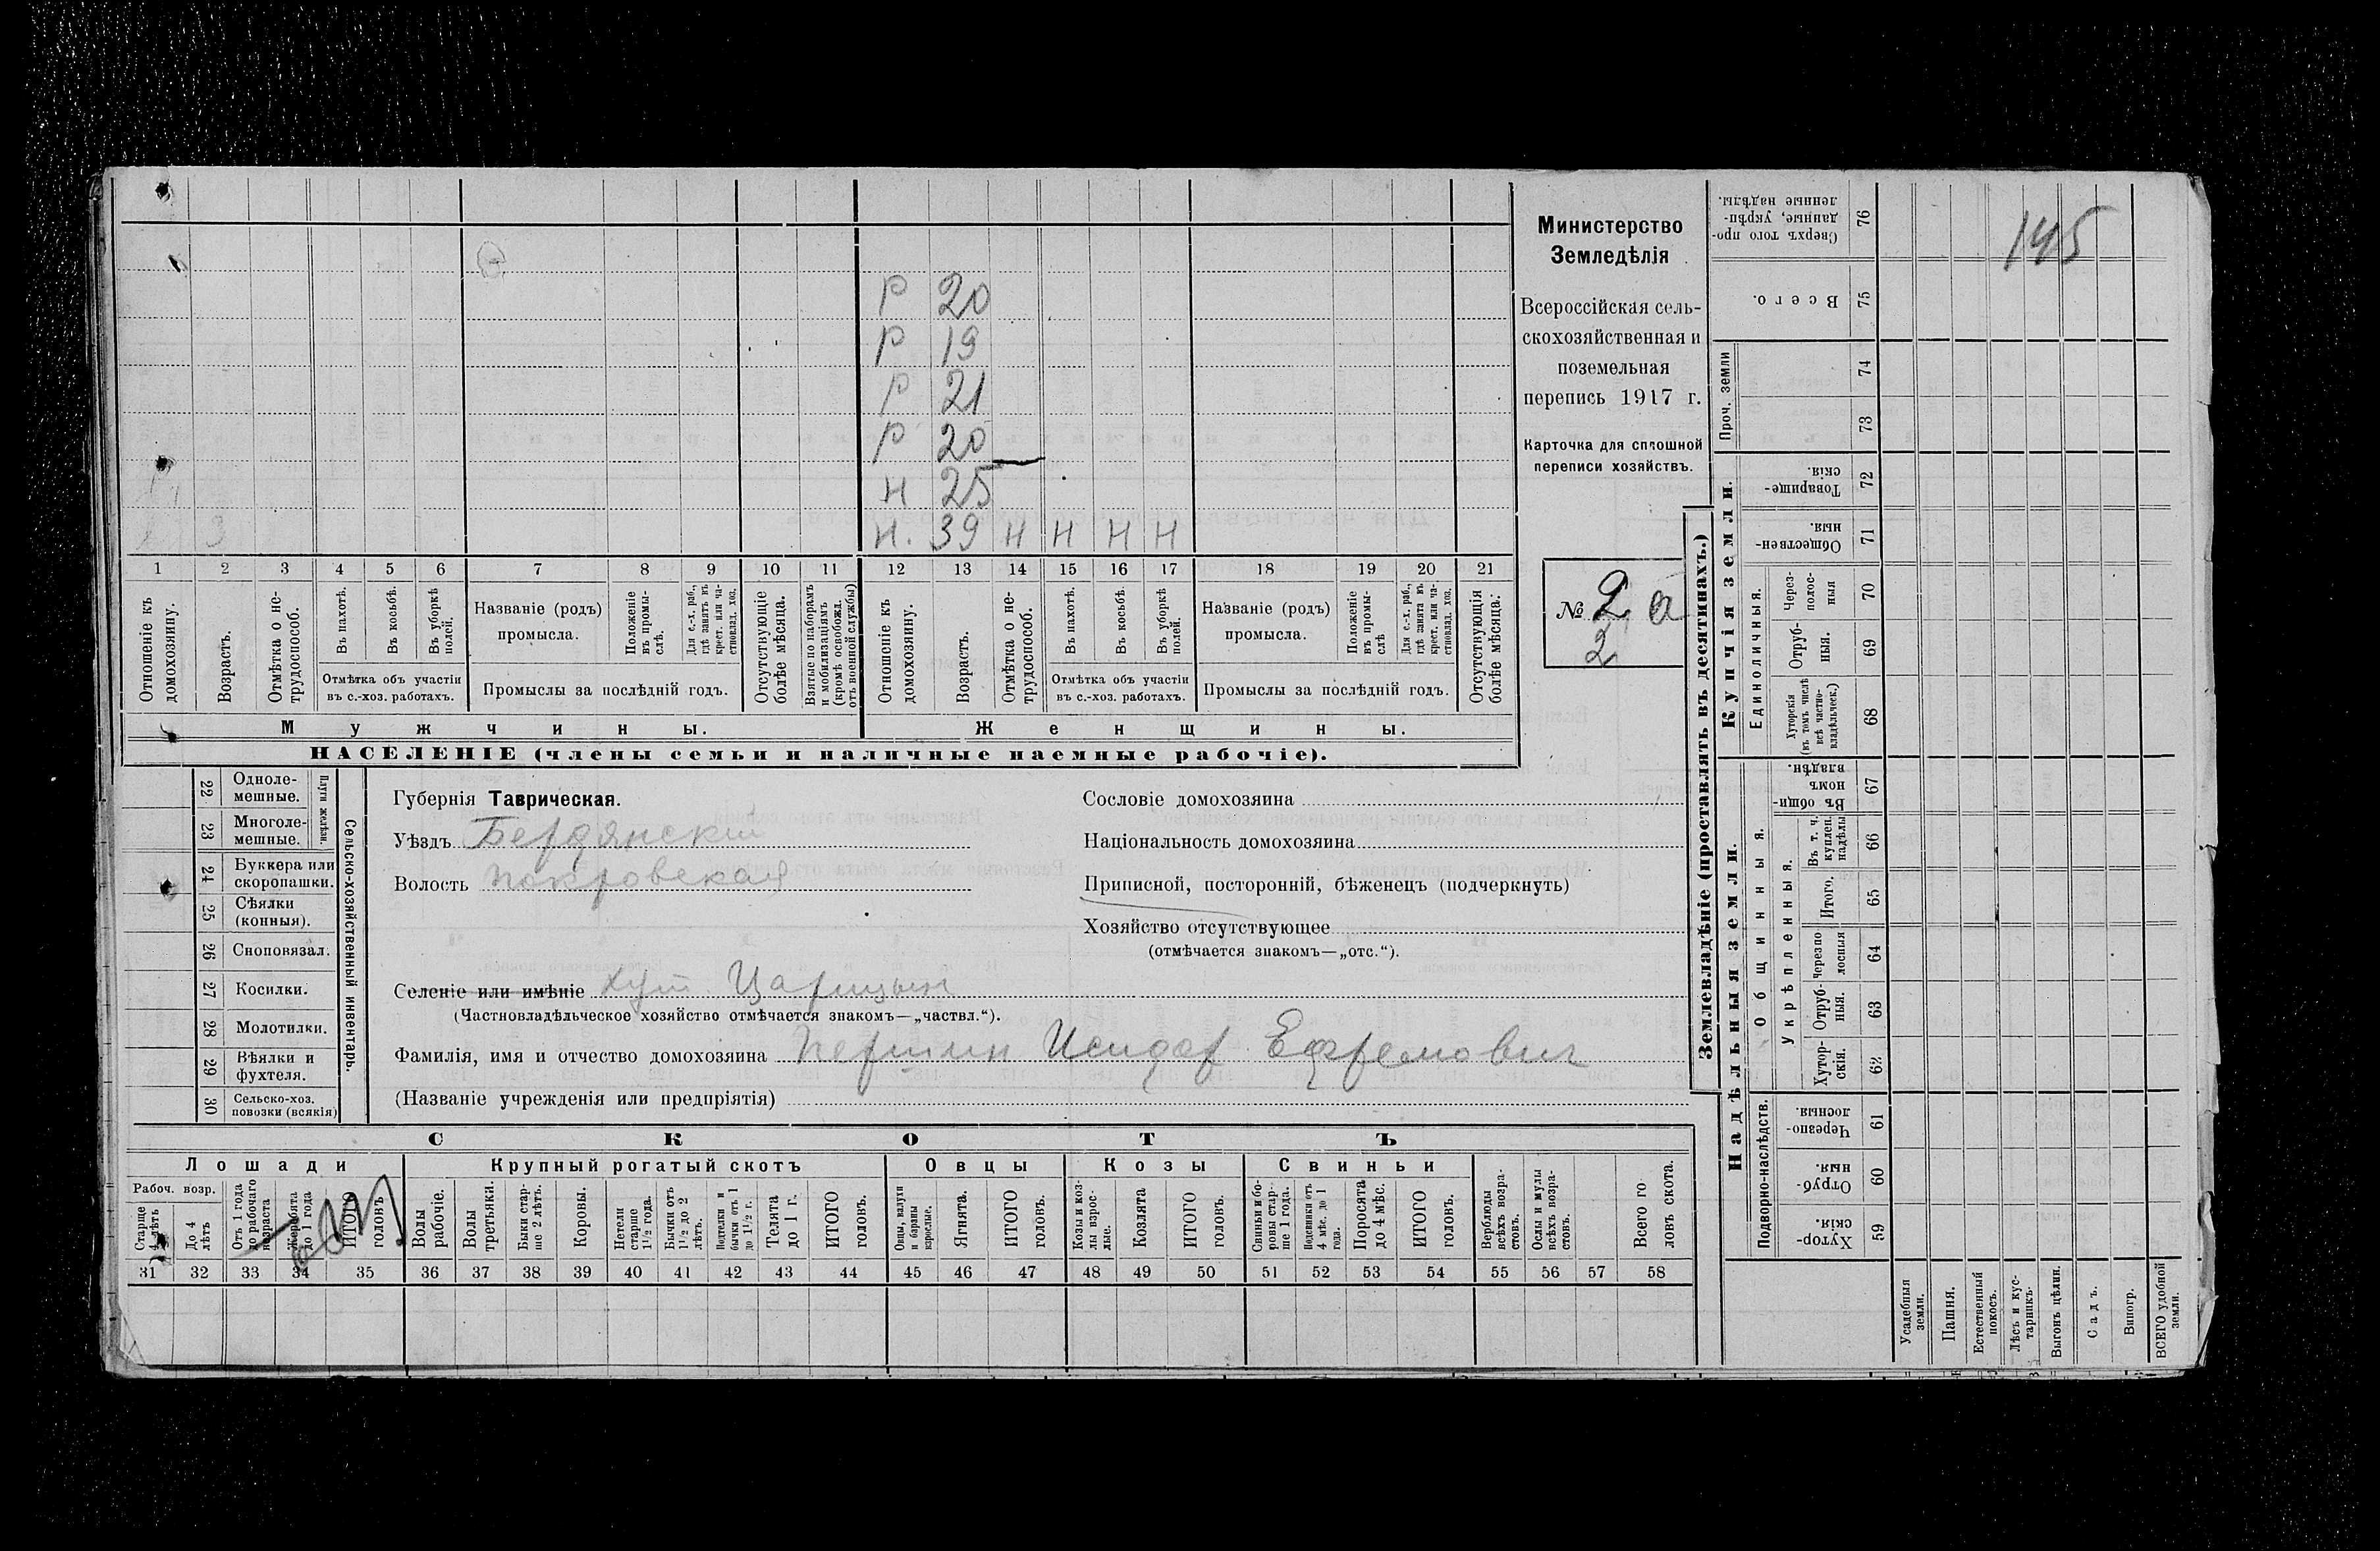 145
Р 20
Р 19
Р 21
Р 20
Н 25
Н. 39 Н Н Н Н
1 2 3 4 5 6 7 8 9 10 11 12 13 14 15 16 17 18 19 20 21
Отношеніе къ домохозяину.
Возрастъ.
Отмѣтка о не-
трудоспособ.
Въ пахотѣ.
Въ косьбѣ.
Въ уборкѣ
полей.
Отмѣтка объ участіи
въ с.-хоз. работахъ.
Названіе (родъ)
промысла.
Положеніе
въ промы-
слѣ.
Для с.-х. раб.,
гдѣ занятъ въ
крест. или ча-
стновлад. хоз.
Промыслы за послѣдній годъ.
Отсутствующіе
болѣе мѣсяца.
Взятые по наборамъ
и мобилизаціямъ
(кромѣ освобожд.
отъ военной службы)
Отношеніе къ
домохозяину.
Возрастъ.
Отмѣтка о не-
трудоспособ.
Въ пахотѣ.
Въ косьбѣ.
Въ уборкѣ
полей.
Отмѣтка объ участіи
въ с.-хоз. работахъ.
Названіе (родъ)
промысла.
Положеніе
въ промы-
слѣ
Для с.-х. раб.,
гдѣ занята въ
крест. или ча-
стновлад. хоз.
Промыслы за послѣдній годъ.
Отсутствующія
болѣе мѣсяца.
Мужчины.
Женщины.
НАСЕЛЕНІЕ (члены семьи и наличные наемные рабочіе).
Министерство
Земледѣлія
Всероссійская сель-
скохозяйственная и
поземельная
перепись 1917 г.
Карточка для сплошной
переписи хозяйствъ.
№ 2 а
2
22 Одноле-
мешные.
23 Многоле-
мешные.
Плуги желѣзн.
24 Буккера или
скоропашки.
25 Сѣялки
(конныя).
26 Сноповязал.
27 Косилки.
28 Молотилки.
29 Вѣялки и
фухтеля.
30 Сельско-хоз.
повозки (всякія)
Сельско-хозяйственный инвентарь.
Губернія Таврическая.
Уѣздъ Бердянскій
Волость Покровская
Селеніе или имѣніе хут. Царицын
(Частновладѣльческое хозяйство отмѣчается знакомъ—„частвл.“).
Фамилія, имя и отчество домохозяина Першин Исидор Ефремович
(Названіе учрежденія или предпріятія)
Сословіе домохозяина
Національность домохозяина
Приписной, посторонній, бѣженецъ (подчеркнуть)
Хозяйство отсутствующее
(отмѣчается знакомъ—„отс.“).
СКОТЪ
Лошади
Рабоч. возр.
Старше
4 лѣтъ
До 4
лѣтъ
Отъ 1 года
до рабочаго
возраста
Жеребята
до 1 года
ИТОГО
головъ.
Крупный рогатый скотъ
Волы
рабочіе.
Волы
третьяки.
Быки стар-
ше 2 лѣтъ.
Коровы.
Нетели
старше
1½ года.
Бычки отъ
1½ до 2
лѣтъ.
Подтелки и
бычки отъ 1
до 1½ г.
Телята
до 1 г.
ИТОГО
головъ.
Овцы
Овцы, валухи
и бараны
взрослые.
Ягнята.
ИТОГО
головъ.
Козы
Козы и коз-
лы взрос-
лые.
Козлята
ИТОГО
головъ.
Свиньи
Свиньи и бо-
ровы стар-
ше 1 года.
Подсвинки отъ
4 мѣс. до 1
года.
Поросята
до 4 мѣс.
ИТОГО
головъ.
Верблюды
всѣхъ возра-
стовъ.
Ослы и мулы
всѣхъ возра-
стовъ.
Всего го
ловъ скота.
31 32 33 34 35 36 37 38 39 40 41 42 43 44 45 46 47 48 49 50 51 52 53 54 55 56 57 58
Землевладѣніе (проставлять въ десятинахъ.)
Сверхъ того про-
данные, укрѣп-
ленные надѣлы.
76
Всего.
75
Проч. земли
74
73
Купчія земли.
Товарище-
скія.
72
Обществен-
ныя.
71
Единоличныя.
Через-
полос-
ныя
70
Отруб-
ныя.
69
Хуторскія
(въ томъ числѣ
всѣ частно-
владѣльческ.)
68
Надѣльныя земли.
Общинныя.
Въ общи-
номъ
владѣн.
67
Укрѣпленныя.
Въ т. ч.
куплен.
надѣлы
66
Итого.
65
Черезпо
лосныя
64
Отруб-
ныя.
63
Хутор-
скія.
62
Подворно-наслѣдств.
Черезпо-
лосныя.
61
Отруб-
ныя.
60
Хутор-
скія.
59
Усадебныя
земли.
Пашня.
Естественный
покосъ.
Лѣсъ и кус-
тарникъ.
Выгонъ цѣлин.
Садъ.
Виногр.
ВСЕГО удобной
земли.